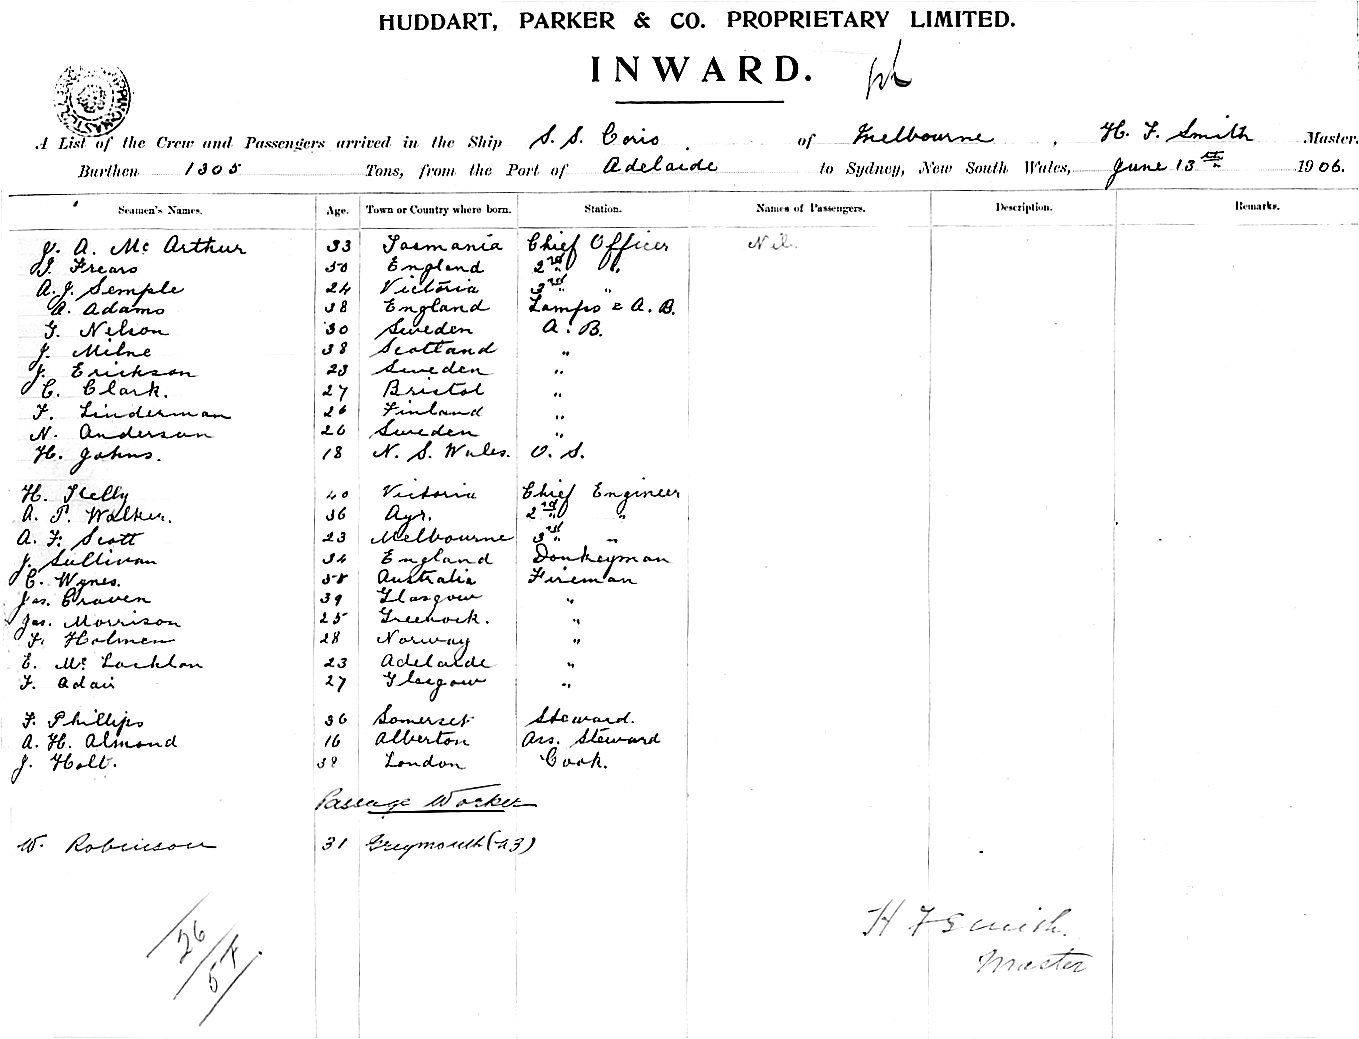 HUDDART, PARKER & CO. PROPRIETARY LIMITED.
INWARD.
A List of the Crew and Passengers arrived in the Ship S. S. Corio of Melbourne, H. F. Smith Master.
Burthen 1305 Tons, from the Port of Adelaide to Sydney, New South Wales, June 13th 1906.
Seamen's Names. Age. Town or Country where born. Station. Names of Passengers. Description. Remarks.
J. A. Mc Arthur 33 Tasmania Chief Officer Nil.
J. Frears 50 England 2nd "
A. J. Semple 24 Victoria 3rd "
A. Adams 38 England Lamps & A. B.
G. Nelson 30 Sweden A. B.
J. Milne 38 Scotland "
J. Erickson 23 Sweden "
C. Clark. 27 Bristol "
F. Linderman 26 Finland "
N. Anderson 26 Sweden "
H. Johns. 18 N. S. Wales. O. S.
H. Skelly 40 Victoria Chief Engineer
A. P. Walker. 36 Ayr. 2nd "
A. F. Scott 23 Melbourne 3rd "
J. Sullivan 34 England Donkeyman
C. Wynes. Australia Fireman
Jas. Craven 39 Glasgow "
Jas. Morrison 25 Greenock. "
F. Holmen 28 Norway "
E. Mc Lachlan 23 Adelaide "
F. Adair 27 Glasgow "
F. Phillips 36 Somerset Steward.
A. H. Almond 16 Alberton Ass. Steward
J. Holt. 38 London Cook.
Passage Worker
W. Robinson 31 Greymouth (NZ)
26
H F Smith.
Master